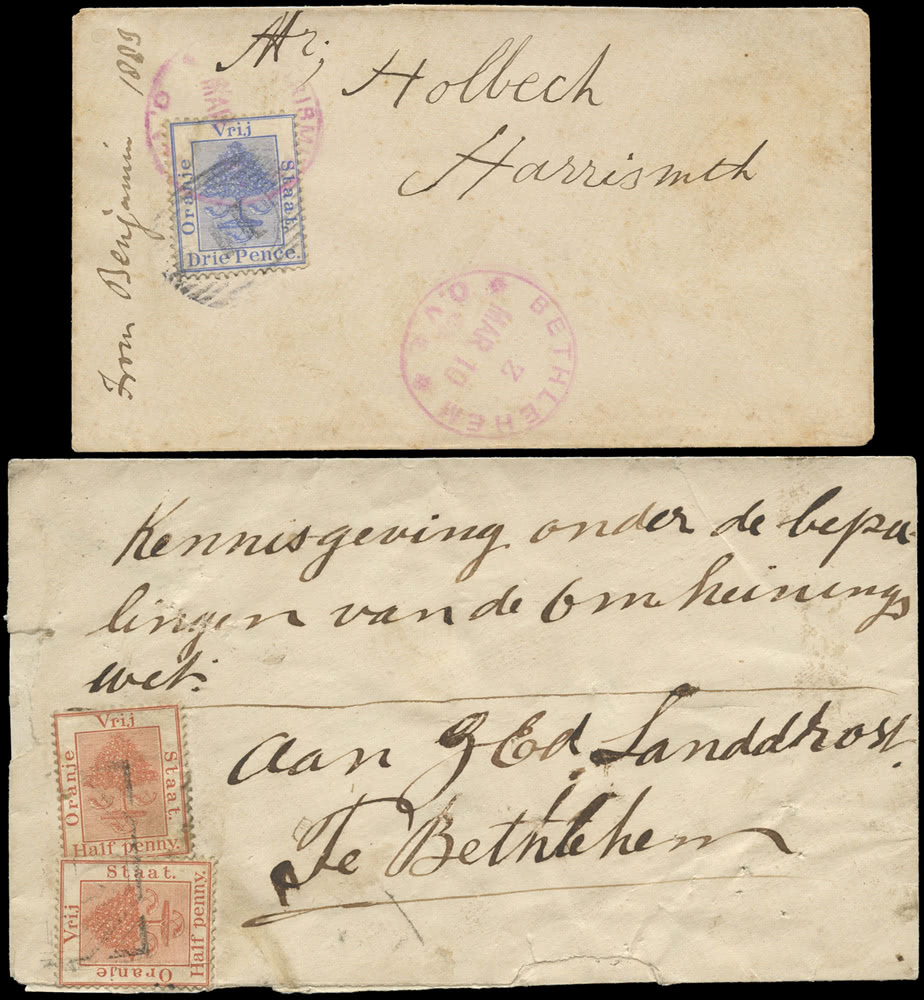 From Benjamin 1883
Mr; Holbech
Harrismith
Oranje Vrij Staat.
Drie Pence.
BETHLEHEM
O.V.S.
MAR 10
2
Kennisgeving onder de bepa-
lingen van de Omheinings
wet.
Aan ZEd. Landdrost.
Te Bethlehem
Oranje Vrij Staat.
Half penny.
Oranje Vrij Staat.
Half penny.